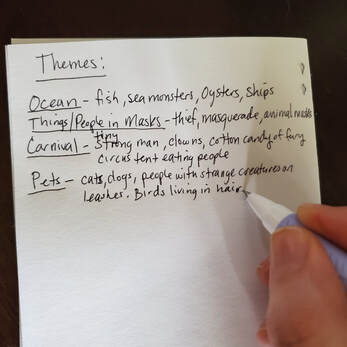 Themes:
Ocean - fish, sea monsters, Oysters, ships
Things/People in Masks - thief, masquerade, animal masks
tiny
Carnival - Strong man, clowns, cotton candy of fury
circus tent eating people
Pets - cats, dogs, people with strange creatures on
leashes. Birds living in hair